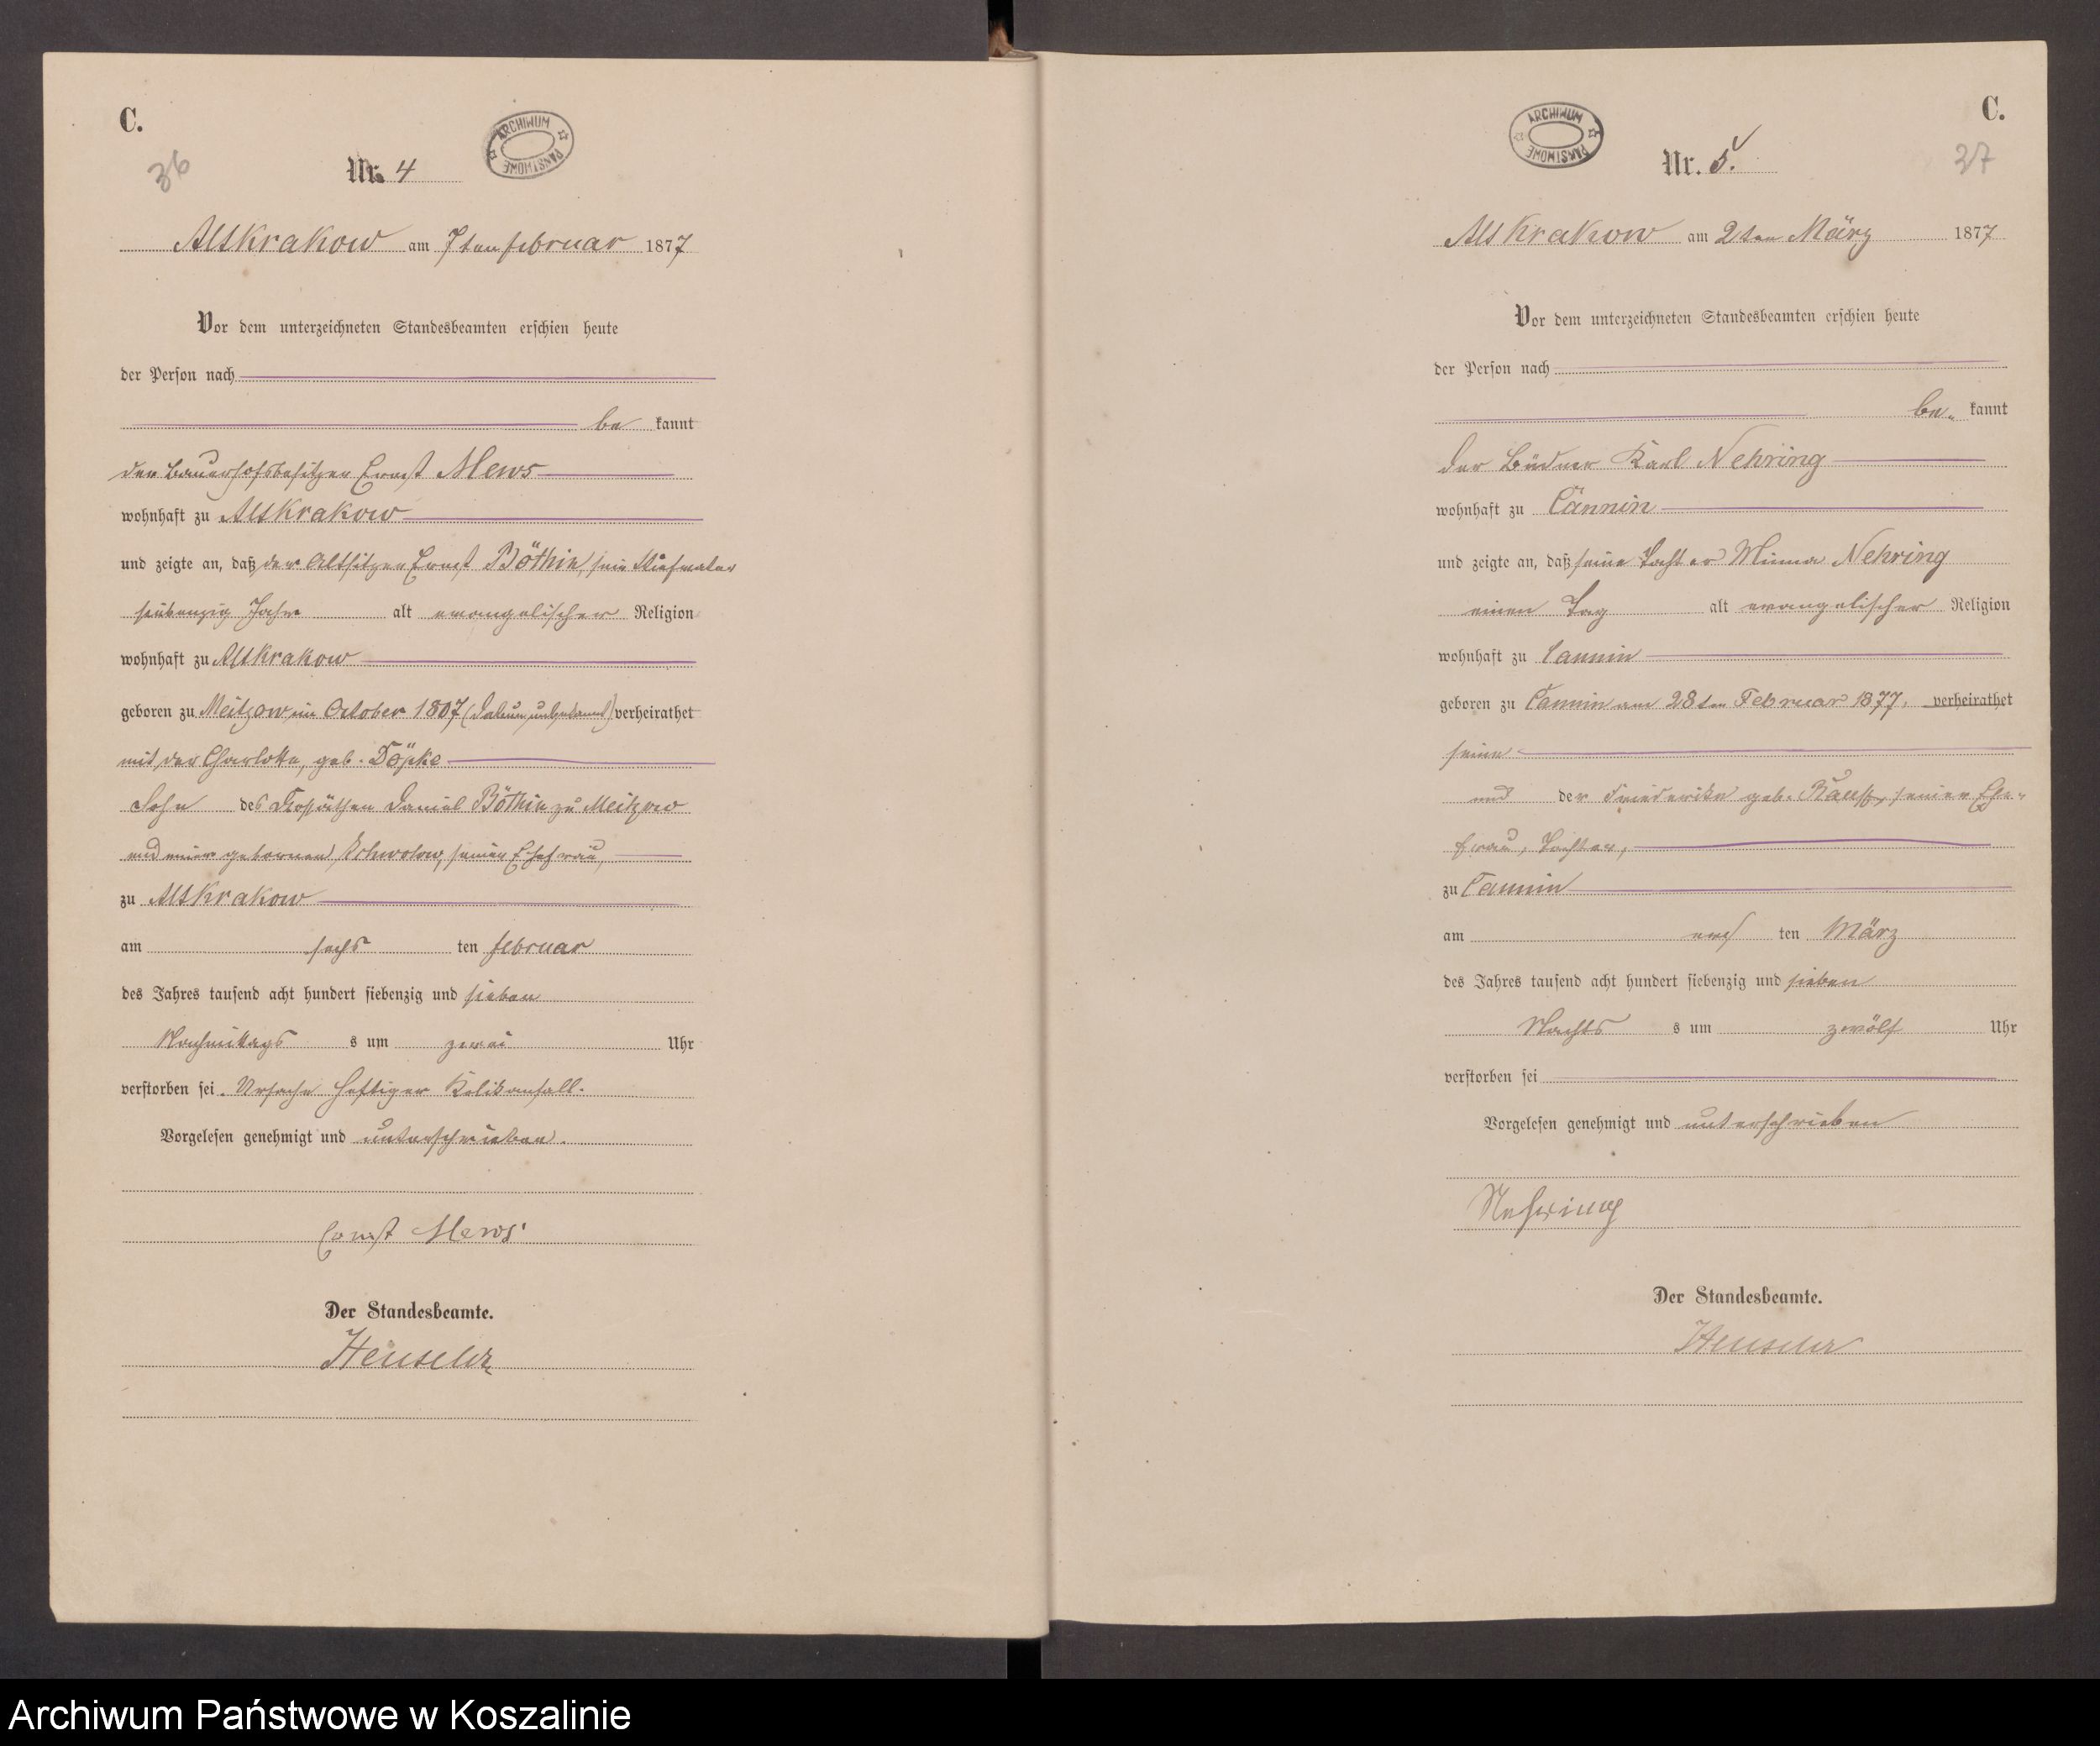 C.
ARCHIWUM PAŃSTWOWE
36
Nr. 4
AltKrakow am 7ten februar 1877
Vor dem unterzeichneten Standesbeamten erschien heute
der Person nach
be kannt
der Bauerhofsbesitzer Ernst Mews
wohnhaft zu AltKrakow
und zeigte an, daß der Altsitzer Ernst Böthin, sein Stiefvater
siebenzig Jahr alt evangelischer Religion
wohnhaft zu AltKrakow
geboren zu Meitzow im October 1807 (Datum unbekannt) verheirathet
mit der Charlotte, geb. Döpke
Sohn des Daniel Böthin zu Meitzow
und einer gebornen Schwolow, seiner Ehefrau,
zu AltKrakow
am sechs ten februar
des Jahres tausend acht hundert siebenzig und sieben
Nachmittags s um zwei Uhr
verstorben sei. Ursache heftiger Kolikanfall.
Vorgelesen genehmigt und unterschrieben.
Ernst Mews
Der Standesbeamte.
C.
ARCHIWUM PAŃSTWOWE
37
Nr. 5.
Alt Krakow am 2ten März 1877
Vor dem unterzeichneten Standesbeamten erschien heute
der Person nach
be- kannt
der Büdner Karl Nehring
wohnhaft zu Cannin
und zeigte an, daß seine Tochter Minna Nehring
einen Tag alt evangelischer Religion
wohnhaft zu Cannin
geboren zu Cannin am 28ten Februar 1877, verheirathet
seine
und der Friederike geb. seiner Ehe-
frau, Tochter,
zu Cannin
am ers ten März
des Jahres tausend acht hundert siebenzig und sieben
Nachts s um zwölf Uhr
verstorben sei
Vorgelesen genehmigt und unterschrieben
Nehring
Der Standesbeamte.
Archiwum Państwowe w Koszalinie